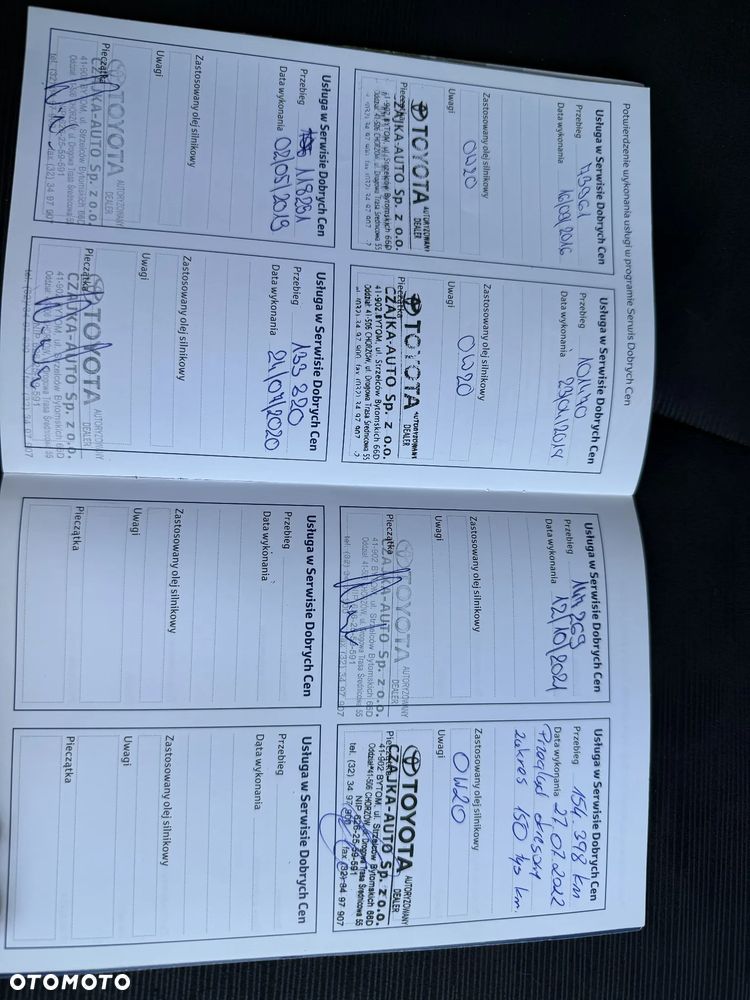 Potwierdzenie wykonania usługi w programie Serwis Dobrych Cen
Usługa w Serwisie Dobrych Cen
Przebieg
Data wykonania 16/09/2016
Zastosowany olej silnikowy
0W20
Uwagi
TOYOTA AUTORYZOWANY DEALER
CZAJKA-AUTO Sp. z o.o.
41-902 BYTOM, ul. Strzelców Bytomskich 66D
Oddział: 41-506 CHORZÓW, ul. Drogowa Trasa Średnicowa 55
Usługa w Serwisie Dobrych Cen
Przebieg
Data wykonania
Zastosowany olej silnikowy
0W20
Uwagi
Pieczątka
TOYOTA AUTORYZOWANY DEALER
CZAJKA-AUTO Sp. z o.o.
41-902 BYTOM, ul. Strzelców Bytomskich 66D
Oddział: 41-506 CHORZÓW, ul. Drogowa Trasa Średnicowa 55
Usługa w Serwisie Dobrych Cen
Przebieg 118281
Data wykonania 02/05/2019
Zastosowany olej silnikowy
Uwagi
Pieczątka
TOYOTA AUTORYZOWANY DEALER
CZAJKA-AUTO Sp. z o.o.
41-902 BYTOM, ul. Strzelców Bytomskich 66D
Usługa w Serwisie Dobrych Cen
Przebieg 133 820
Data wykonania 24/07/2020
Zastosowany olej silnikowy
Uwagi
Pieczątka
TOYOTA AUTORYZOWANY DEALER
CZAJKA-AUTO Sp. z o.o.
Usługa w Serwisie Dobrych Cen
Przebieg
Data wykonania 12/10/2021
Zastosowany olej silnikowy
Uwagi
Pieczątka
TOYOTA AUTORYZOWANY DEALER
CZAJKA-AUTO Sp. z o.o.
41-902 BYTOM, ul. Strzelców Bytomskich 66D
Usługa w Serwisie Dobrych Cen
Przebieg 154 398 km
Data wykonania 27.07.2022
Przegląd okresowy
zakres 150 tys km.
Zastosowany olej silnikowy
0W20
Uwagi
Pieczątka
TOYOTA AUTORYZOWANY DEALER
CZAJKA-AUTO Sp. z o.o.
41-902 BYTOM, ul. Strzelców Bytomskich 66D
Oddział: 41-506 CHORZÓW, ul. Drogowa Trasa Średnicowa 55
NIP 626-25-59-591
Usługa w Serwisie Dobrych Cen
Przebieg
Data wykonania
Zastosowany olej silnikowy
Uwagi
Pieczątka
Usługa w Serwisie Dobrych Cen
Przebieg
Data wykonania
Zastosowany olej silnikowy
Uwagi
Pieczątka
OTOMOTO